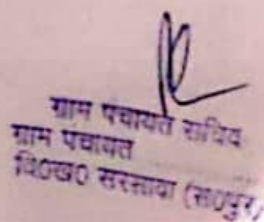 ग्राम पंचायत सचिव
ग्राम पंचायत
वि०ख० सरसावा (स०पुर)